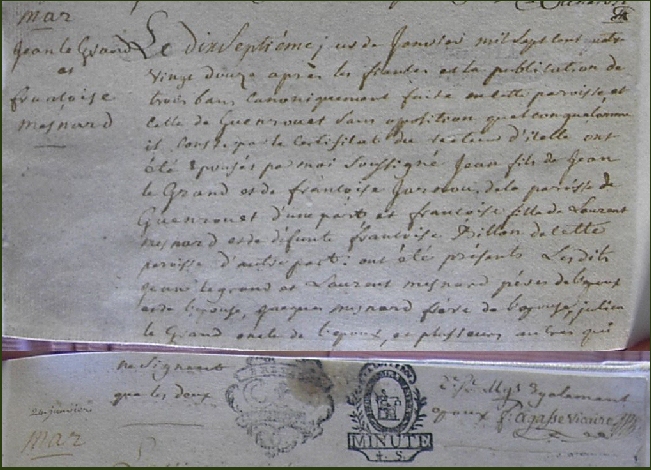 mar
jean le Grand
et
françoise
mesnard
Le dixseptième jour de Janvier mil sept cent
vingt douze après les fiances et la publication de
trois bans canoniquement faite en cette paroisse et
celle de Guenrouet sans opposition quelconque comme
il conste par le certificat du recteur d'icelle ont
été épousés par moi soussigné Jean fils de Jean
le Grand et de françoise de la paroisse de
Guenrouet d'une part et françoise fille de Laurent
mesnard et de défunte françoise de cette
paroisse d'autre part: ont été présents Lesdits
jean legrand et Laurent mesnard pères de l'époux
et de l'épouse, mesnard frère de l'épouse, julien
le Grand oncle de l'époux, et plusieurs autres qui
ne signent
que les deux
également
époux vicaire
MINUTE
4. S.
24 janvier
mar